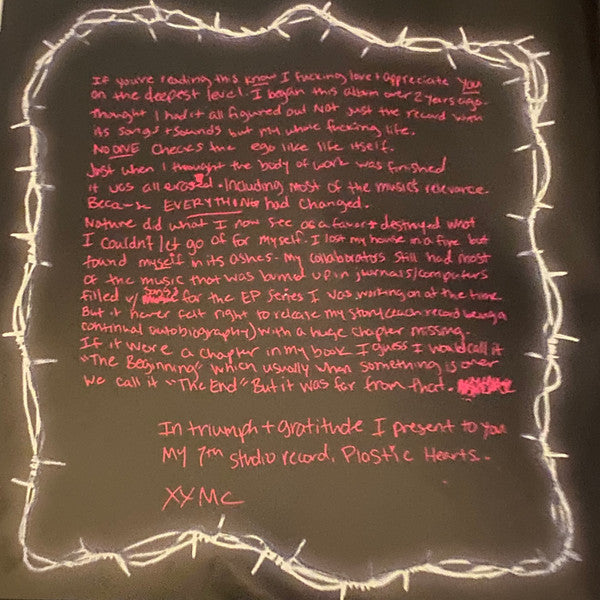 If you're reading this know I fucking love + appreciate you
on the deepest level. I began this album over 2 years ago.
Thought I had it all figured out NOT just the record with
its songs + sounds but my whole fucking life.
NO ONE checks the ego like life itself.
Just when I thought the body of work was finished
it was all erased. Including most of the music's relevance.
Because EVERYTHING had changed.
Nature did what I now see as a favor + destroyed what
I couldn't let go of for myself. I lost my house in a fire but
found myself in its ashes. My collaborators still had most
of the music that was burned up in journals/computers
filled w/ for the EP series I was working on at the time
But it never felt right to release my story (each record being a
continual autobiography) with a huge chapter missing.
If it were a chapter in my book I guess I would call it
"The Beginning" which usually when something is over
we call it "The End" But it was far from that.
In triumph + gratitude I present to you
My 7th studio record, Plastic Hearts.
XX MC